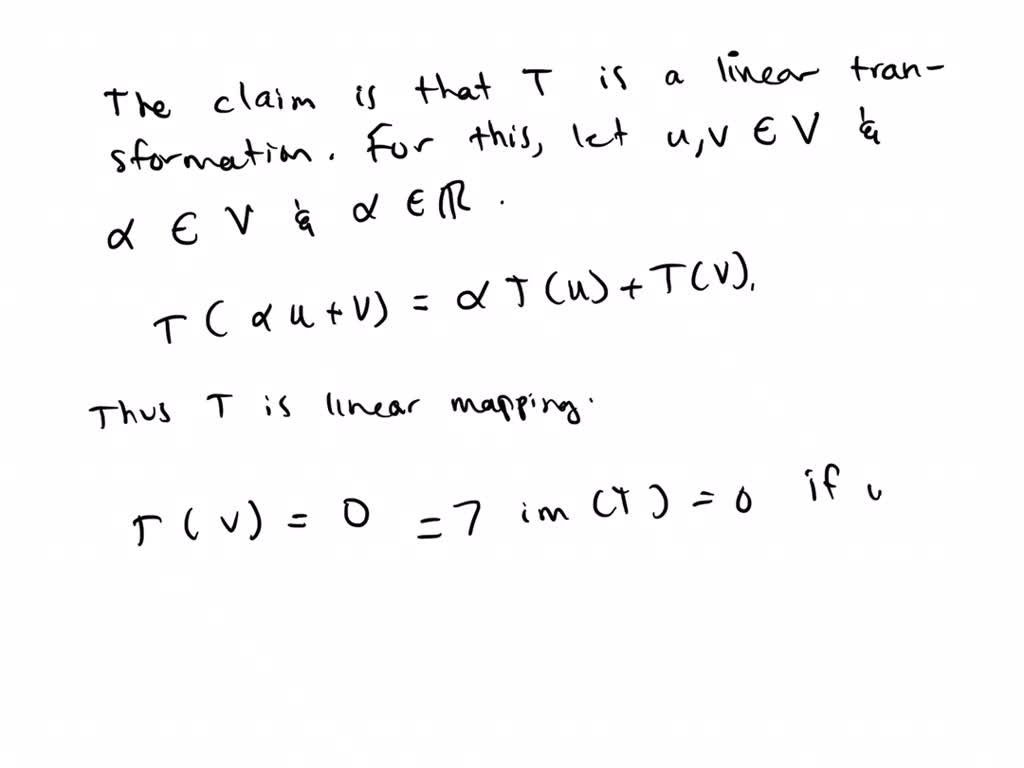 The claim is that T is a linear tran-
sformation. For this, let u,v ∈ V &
α ∈ V & α ∈ ℝ.
T(αu+v) = αT(u)+T(v).
Thus T is linear mapping.
T(v) = 0 => im(T) = 0 if